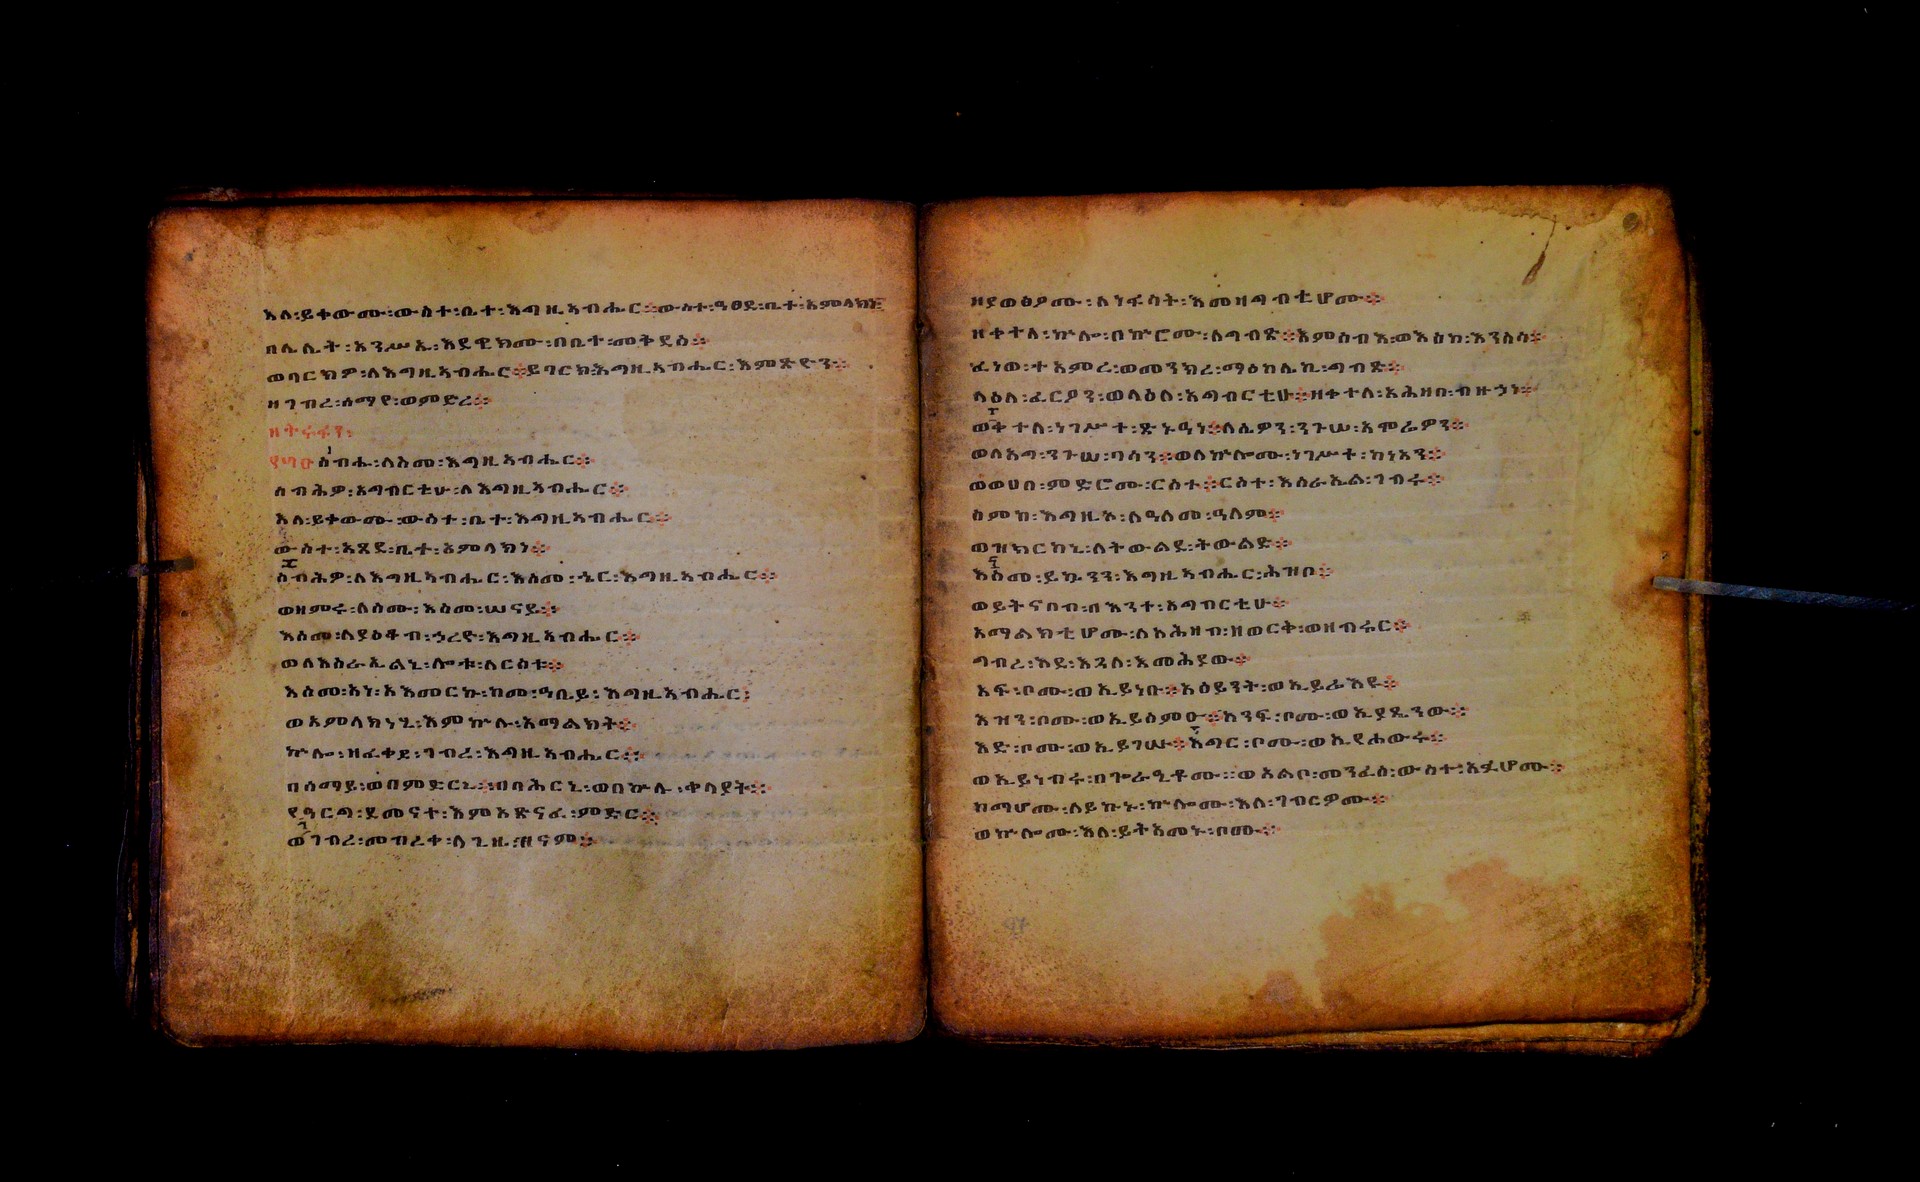 እለ፡ይቀውሙ፡ውስተ፡ቤተ፡እግዚኣብሔር፨ውስተ፡ዓፀደ፡ቤተ፡አምላክነ፨
በሌሊት፡አንሥኡ፡እደዊክሙ፡በቤተ፡መቅደስ፨
ወባርክዎ፡ለእግዚኣብሔር፨ይባርክ፡እግዚኣብሔር፡እምጽዮን፨
ዘገብረ፡ሰማየ፡ወምድረ፨
ስብሑ፡ለስሙ፡እግዚኣብሔር፨
ሰብሕዎ፡አግብርቲሁ፡ለእግዚኣብሔር፨
እለ፡ይቀውሙ፡ውስተ፡ቤተ፡እግዚኣብሔር፨
ውስተ፡አጸደ፡ቤተ፡አምላክነ፨
ሰብሕዎ፡ለእግዚኣብሔር፡እስመ፡ኄር፡እግዚኣብሔር፨
ወዘምሩ፡ለስሙ፡እስመ፡ሠናይ፨
እስመ፡ለያዕቆብ፡ኃረዮ፡እግዚኣብሔር፨
ወለእስራኤልኒ፡ሎቱ፡ለርስቱ፨
እስመ፡አነ፡አእመርኩ፡ከመ፡ዓቢይ፡እግዚኣብሔር፡
ወአምላክነሂ፡እምኵሉ፡አማልክት፨
ኵሎ፡ዘፈቀደ፡ገብረ፡እግዚኣብሔር፨
በሰማይ፡ወበምድርኒ፨በባሕርኒ፡ወበኵሉ፡ቀላያት፨
የዓርግ፡ደመናተ፡እምአጽናፈ፡ምድር፨
ወገብረ፡መብረቀ፡ለጊዜ፡ዝናም፨
ዘያወፅኦሙ፡ለነፋሳት፡እመዛግብቲሆሙ፨
ዘቀተለ፡ኵሎ፡በኵሮሙ፡ለግብጽ፨እምሰብእ፡ወእስከ፡እንስሳ፨
ፈነወ፡ተአምረ፡ወመንክረ፡ማዕከሌኪ፡ግብጽ፨
ላዕለ፡ፈርዖን፡ወላዕለ፡አግብርቲሁ፨ዘቀተለ፡አሕዛበ፡ብዙኃነ፨
ወቀተለ፡ነገሥተ፡ጽኑዓነ፨ለሴዎን፡ንጉሠ፡አሞሬዎን፨
ወለአግ፡ንጉሠ፡ባሳን፨ወለኵሎሙ፡ነገሥተ፡ከነአን፨
ወወሀበ፡ምድሮሙ፡ርስተ፨ርስተ፡እስራኤል፡ገብሩ፨
ስምከ፡እግዚኦ፡ለዓለመ፡ዓለም፨
ወዝክርከኒ፡ለትውልደ፡ትውልድ፨
እስመ፡ይኴንን፡እግዚኣብሔር፡ሕዝቦ፨
ወይትናበብ፡በእንተ፡አግብርቲሁ፨
አማልክቲሆሙ፡ለአሕዛብ፡ዘወርቅ፡ወዘብሩር፨
ግብረ፡እደ፡እጓለ፡እመሕያው፨
አፍ፡ቦሙ፡ወኢይነቡ፨አዕይንት፡ወኢይሬእዩ፨
እዝን፡ቦሙ፡ወኢይሰምዑ፨አንፍ፡ቦሙ፡ወኢያጼንው፨
እድ፡ቦሙ፡ወኢይገሡ፨እግር፡ቦሙ፡ወኢየሐውሩ፨
ወኢይነብሩ፡በጐራዒቶሙ፡፡ወአልቦ፡መንፈስ፡ውስተ፡አፉሆሙ፨
ከማሆሙ፡ለይኩኑ፡ኵሎሙ፡እለ፡ገብርዎሙ፨
ወኵሎሙ፡እለ፡ይትአመኑ፡ቦሙ፨